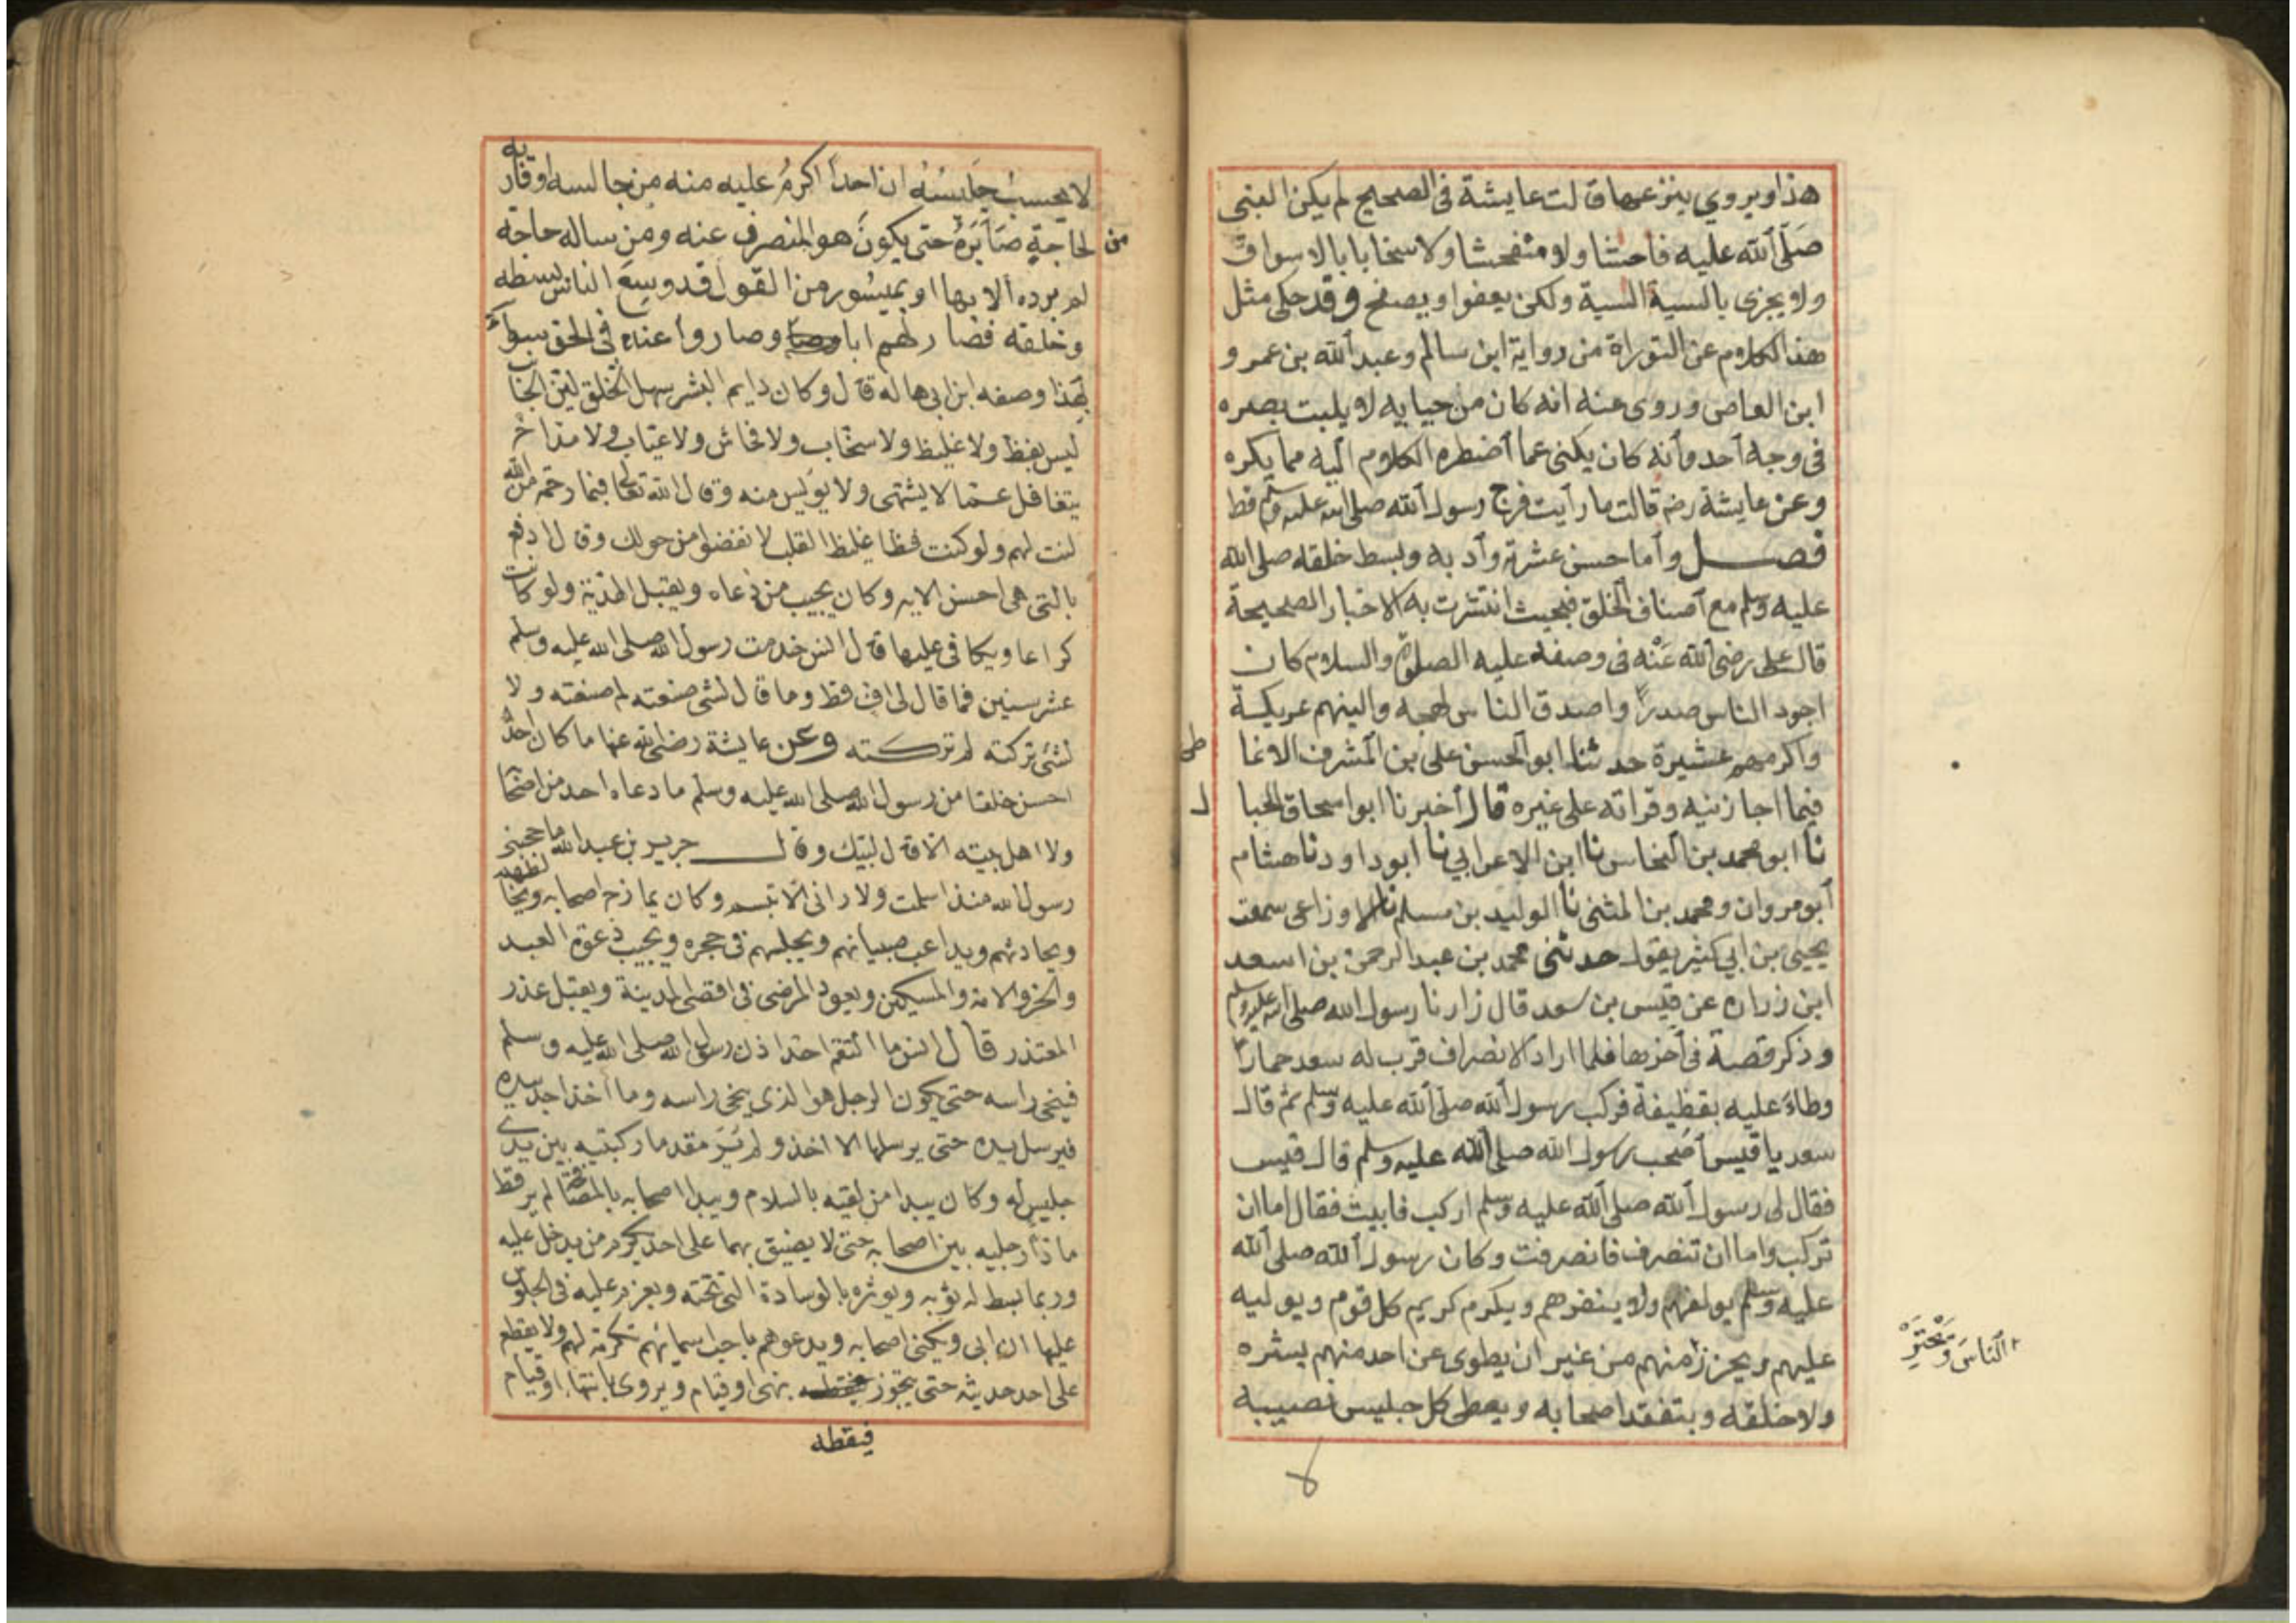 هذا ويروي ينزعها قالت عايشة في الصحيح لم يكن النبي
صلى الله عليه فاحشا ولا متفحشا ولا سخابا بالاسواق
ولا يجزى بالسية السية ولكن يعفوا ويصفح وقد حكى مثل
هذا الكلام عن التوراة من رواية ابن سالم وعبد الله بن عمرو
ابن العاص وروى عنه انه كان من حيايه لا يثبت بصره
فى وجه احد وانه كان يكنى عما اضطره الكلام اليه مما يكره
وعن عايشة رضه قالت ما رايت فرج رسول الله صلى الله عليه وسلم قط
فصل واما حسن عشرته وادبه وبسط خلقه صلى الله
عليه وسلم مع اصناف الخلق فبحيث انتشرت به الاخبار الصحيحة
قال على رضى الله عنه فى وصفه عليه الصلوة والسلام كان
اجود الناس صدرا واصدق الناس لهجه والينهم عريكة
واكرمهم عشيرة حدثنا ابو الحسن على بن المشرف الانما
طى
فيما اجازنيه وقراته على غيره قال اخبرنا ابو اسحاق الحبا
ل
نا ابو محمد بن النحاس نا ابن الاعرابي نا ابو داود نا هشام
ابو مروان ومحمد بن المثنى نا الوليد بن مسلم نا الاوزاعى سمعت
يحيى بن ابي كثير يقول حدثنى محمد بن عبد الرحمن بن اسعد
ابن زراره عن قيس بن سعد قال زارنا رسول الله صلى الله عليه وسلم
وذكر قصة فى اخرها فلما اراد الانصراف قرب له سعد حمارا
وطاء عليه بقطيفة فركب رسول الله صلى الله عليه وسلم ثم قال
سعد يا قيس اصحب رسول الله صلى الله عليه وسلم قال قيس
فقال لى رسول الله صلى الله عليه وسلم اركب فابيت فقال اما ان
تركب واما ان تنصرف فانصرفت وكان رسول الله صلى الله
عليه وسلم يولفهم ولا ينفرهم ويكرم كريم كل قوم ويوليه
عليهم ويحرز منهم من غير ان يطوى عن احد منهم بشره
الناس ويحترز
ولا خلقه ويتفقد اصحابه ويعطى كل جليس نصيبه
لا
لا يحسب جليسه ان احدا اكرم عليه منه من جالسه او قاربه
من
لحاجة صابره حتى يكون هو المنصرف عنه ومن ساله حاجة
لم يرده الا بها او بميسور من القول قد وسع الناس بسطه
وخلقه فصار لهم ابا وصاروا عنده فى الحق سواء
بهذا وصفه ابن ابى هاله قال وكان دايم البشر سهل الخلق لين الجانب
ليس بفظ ولا غليظ ولا سخاب ولا فحاش ولا عياب ولا مداح
يتغافل عما لا يشتهى ولا يويس منه وقال الله تعالى فبما رحمة من الله
لنت لهم ولو كنت فظا غليظ القلب لانفضوا من حولك وقال ادفع
بالتى هى احسن الايه وكان يجيب من دعاه ويقبل الهدية ولو كانت
كراعا ويكافى عليها قال انس خدمت رسول الله صلى الله عليه وسلم
عشر سنين فما قال لى اف قط وما قال لشى صنعته لم صنعته ولا
لشئ تركته لم تركته وعن عايشة رضى الله عنها ما كان احد
احسن خلقا من رسول الله صلى الله عليه وسلم ما دعاه احد من اصحا
ولا اهل بيته الا قال لبيك وقال جرير بن عبد الله ما حجبنى
رسول الله منذ اسلمت ولا رانى الا تبسم وكان يمازح اصحابه ويخالطهم
ويحادثهم ويداعب صبيانهم ويجلسهم فى حجره ويجيب دعوة العبد
والحر والامة والمسكين ويعود المرضى فى اقصى المدينة ويقبل عذر
المعتذر قال انس ما التقم احد اذن رسول الله صلى الله عليه وسلم
فينحى راسه حتى يكون الرجل هو الذى ينحى راسه وما اخذ احد بيده
فيرسل يده حتى يرسلها الاخذ ولم ير مقدما ركبتيه بين يدى
جليس له وكان يبدا من لقيه بالسلام ويبدا اصحابه بالمصافحة لم ير قط
مادا رجليه بين اصحابه حتى لا يضيق بهما على احد يكرم من يدخل عليه
وربما بسط له ثوبه ويوثره بالوسادة التى تحته ويعزم عليه فى الجلوس
عليها ان ابى ويكنى اصحابه ويدعوهم باحب اسمائهم تكرمة لهم ولا يقطع
على احد حديثه حتى يتجوز فيقطعه بنهى او قيام ويروى بانتهاء او قيام
فيقطعه